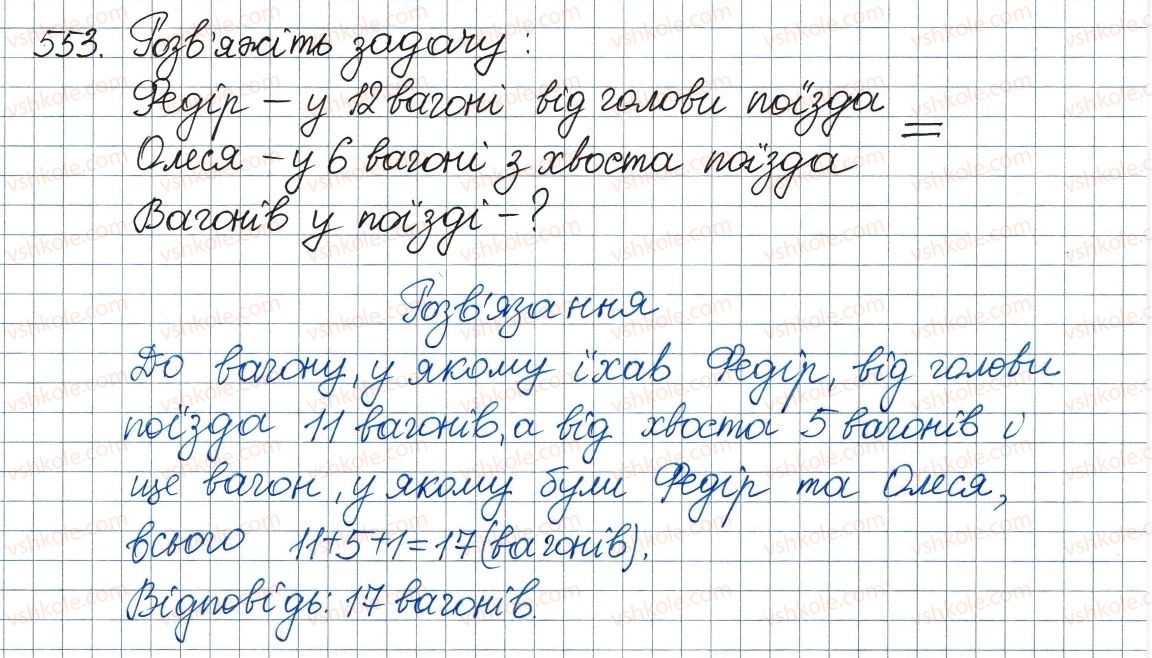 553. Розв'яжіть задачу:
Федір – у 12 вагоні від голови поїзда
Олеся – у 6 вагоні з хвоста поїзда =
Вагонів у поїзді – ?
Розв'язання
До вагону, у якому їхав Федір, від голови
поїзда 11 вагонів, а від хвоста 5 вагонів і
ще вагон, у якому були Федір та Олеся,
всього 11+5+1=17(вагонів).
Відповідь: 17 вагонів.
vshkole.com